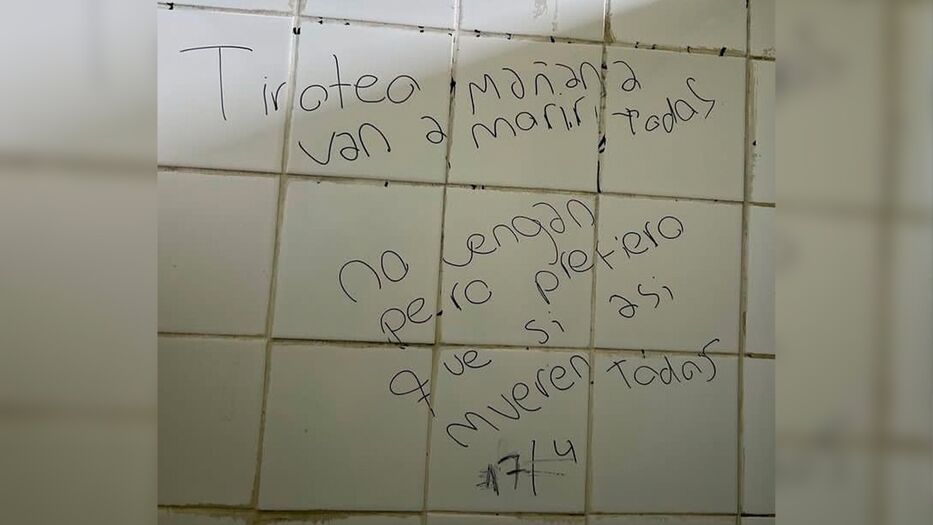 Tiroteo mañana
van a morir todas
no vengan
pero prefiero
que si asi
mueren todas
17/4